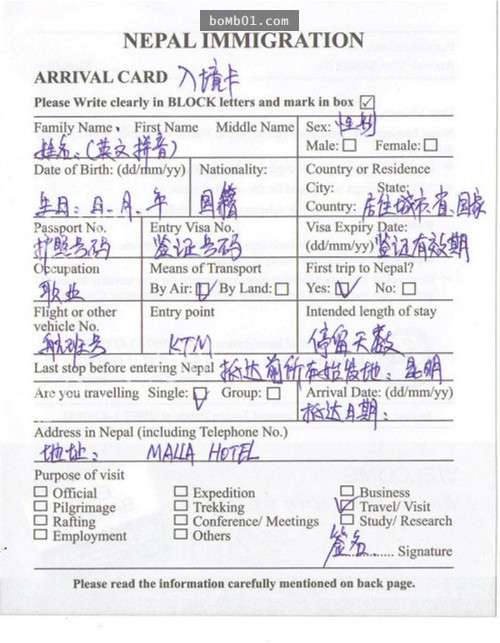 boMb01.com
NEPAL IMMIGRATION
ARRIVAL CARD 入境卡
Please Write clearly in BLOCK letters and mark in box ☑
Family Name, First Name Middle Name
姓名:(英文拼音)
Sex: 性别
Male: ☐ Female: ☐
Date of Birth: (dd/mm/yy)
生日:日.月.年
Nationality:
国籍
Country or Residence
City: State:
Country: 居住城市.省.国家
Passport No.
护照号码
Entry Visa No.
签证号码
Visa Expiry Date:
(dd/mm/yy) 签证有效期
Occupation
职业
Means of Transport
By Air: ☑ By Land: ☐
First trip to Nepal?
Yes: ☑ No: ☐
Flight or other
vehicle No.
航班号
Entry point
KTM
Intended length of stay
停留天数
Last stop before entering Nepal 抵达前所在始发地:昆明
Are you travelling Single: ☑ Group: ☐
Arrival Date: (dd/mm/yy)
抵达日期:
Address in Nepal (including Telephone No.)
地址: MALLA HOTEL
Purpose of visit
☐ Official ☐ Expedition ☐ Business
☐ Pilgrimage ☐ Trekking ☑ Travel/ Visit
☐ Rafting ☐ Conference/ Meetings ☐ Study/ Research
☐ Employment ☐ Others
签名...... Signature
Please read the information carefully mentioned on back page.